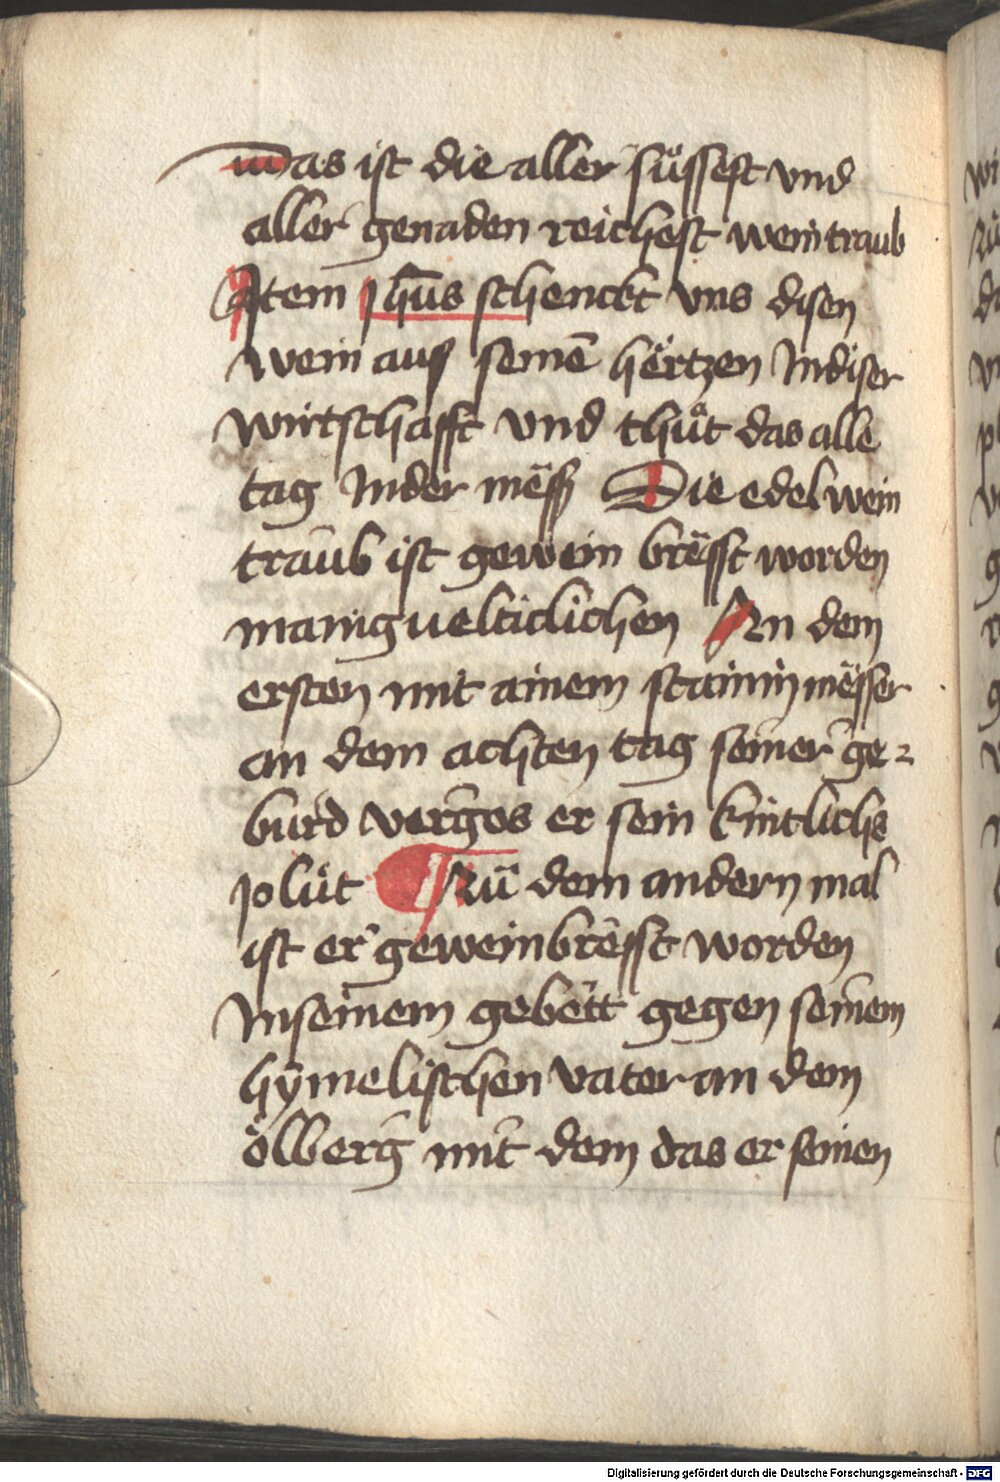 was ist die aller süssest vnd
aller genaden reichest weintraub
Item Jhūs schenckt vns disen
wein auß seinē hërtzen Indiser
wirtschafft vnd thůt das alle
tag Inder mëß Die edel wein
traub ist gewein brësst worden
maniguelticlichen An dem
ersten mit ainem stainin mësser
an dem achten tag seiner ge-
burd vergos er sein kintlichs
plůt Zů dem andern mal
ist er geweinbrësst worden
Inseinem gebëtt gegen seinem
hÿmelischen vater an dem
ölberg mit dem das er seinen
Digitalisierung gefördert durch die Deutsche Forschungsgemeinschaft - DFG